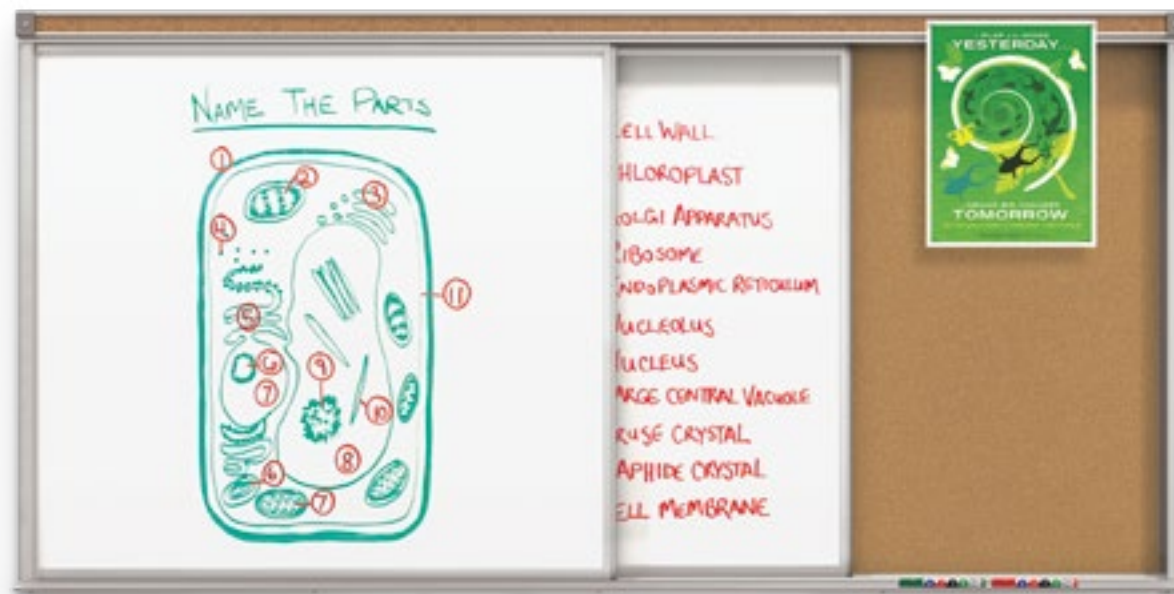 NAME THE PARTS
1
2
3
4
5
6
7
9
10
8
6
7
11
ELL WALL
HLOROPLAST
OLGI APPARATUS
RIBOSOME
ENDOPLASMIC RETICULUM
NUCLEOLUS
NUCLEUS
ARGE CENTRAL VACUOLE
RUSE CRYSTAL
APHIDE CRYSTAL
ELL MEMBRANE
YESTERDAY
TOMORROW